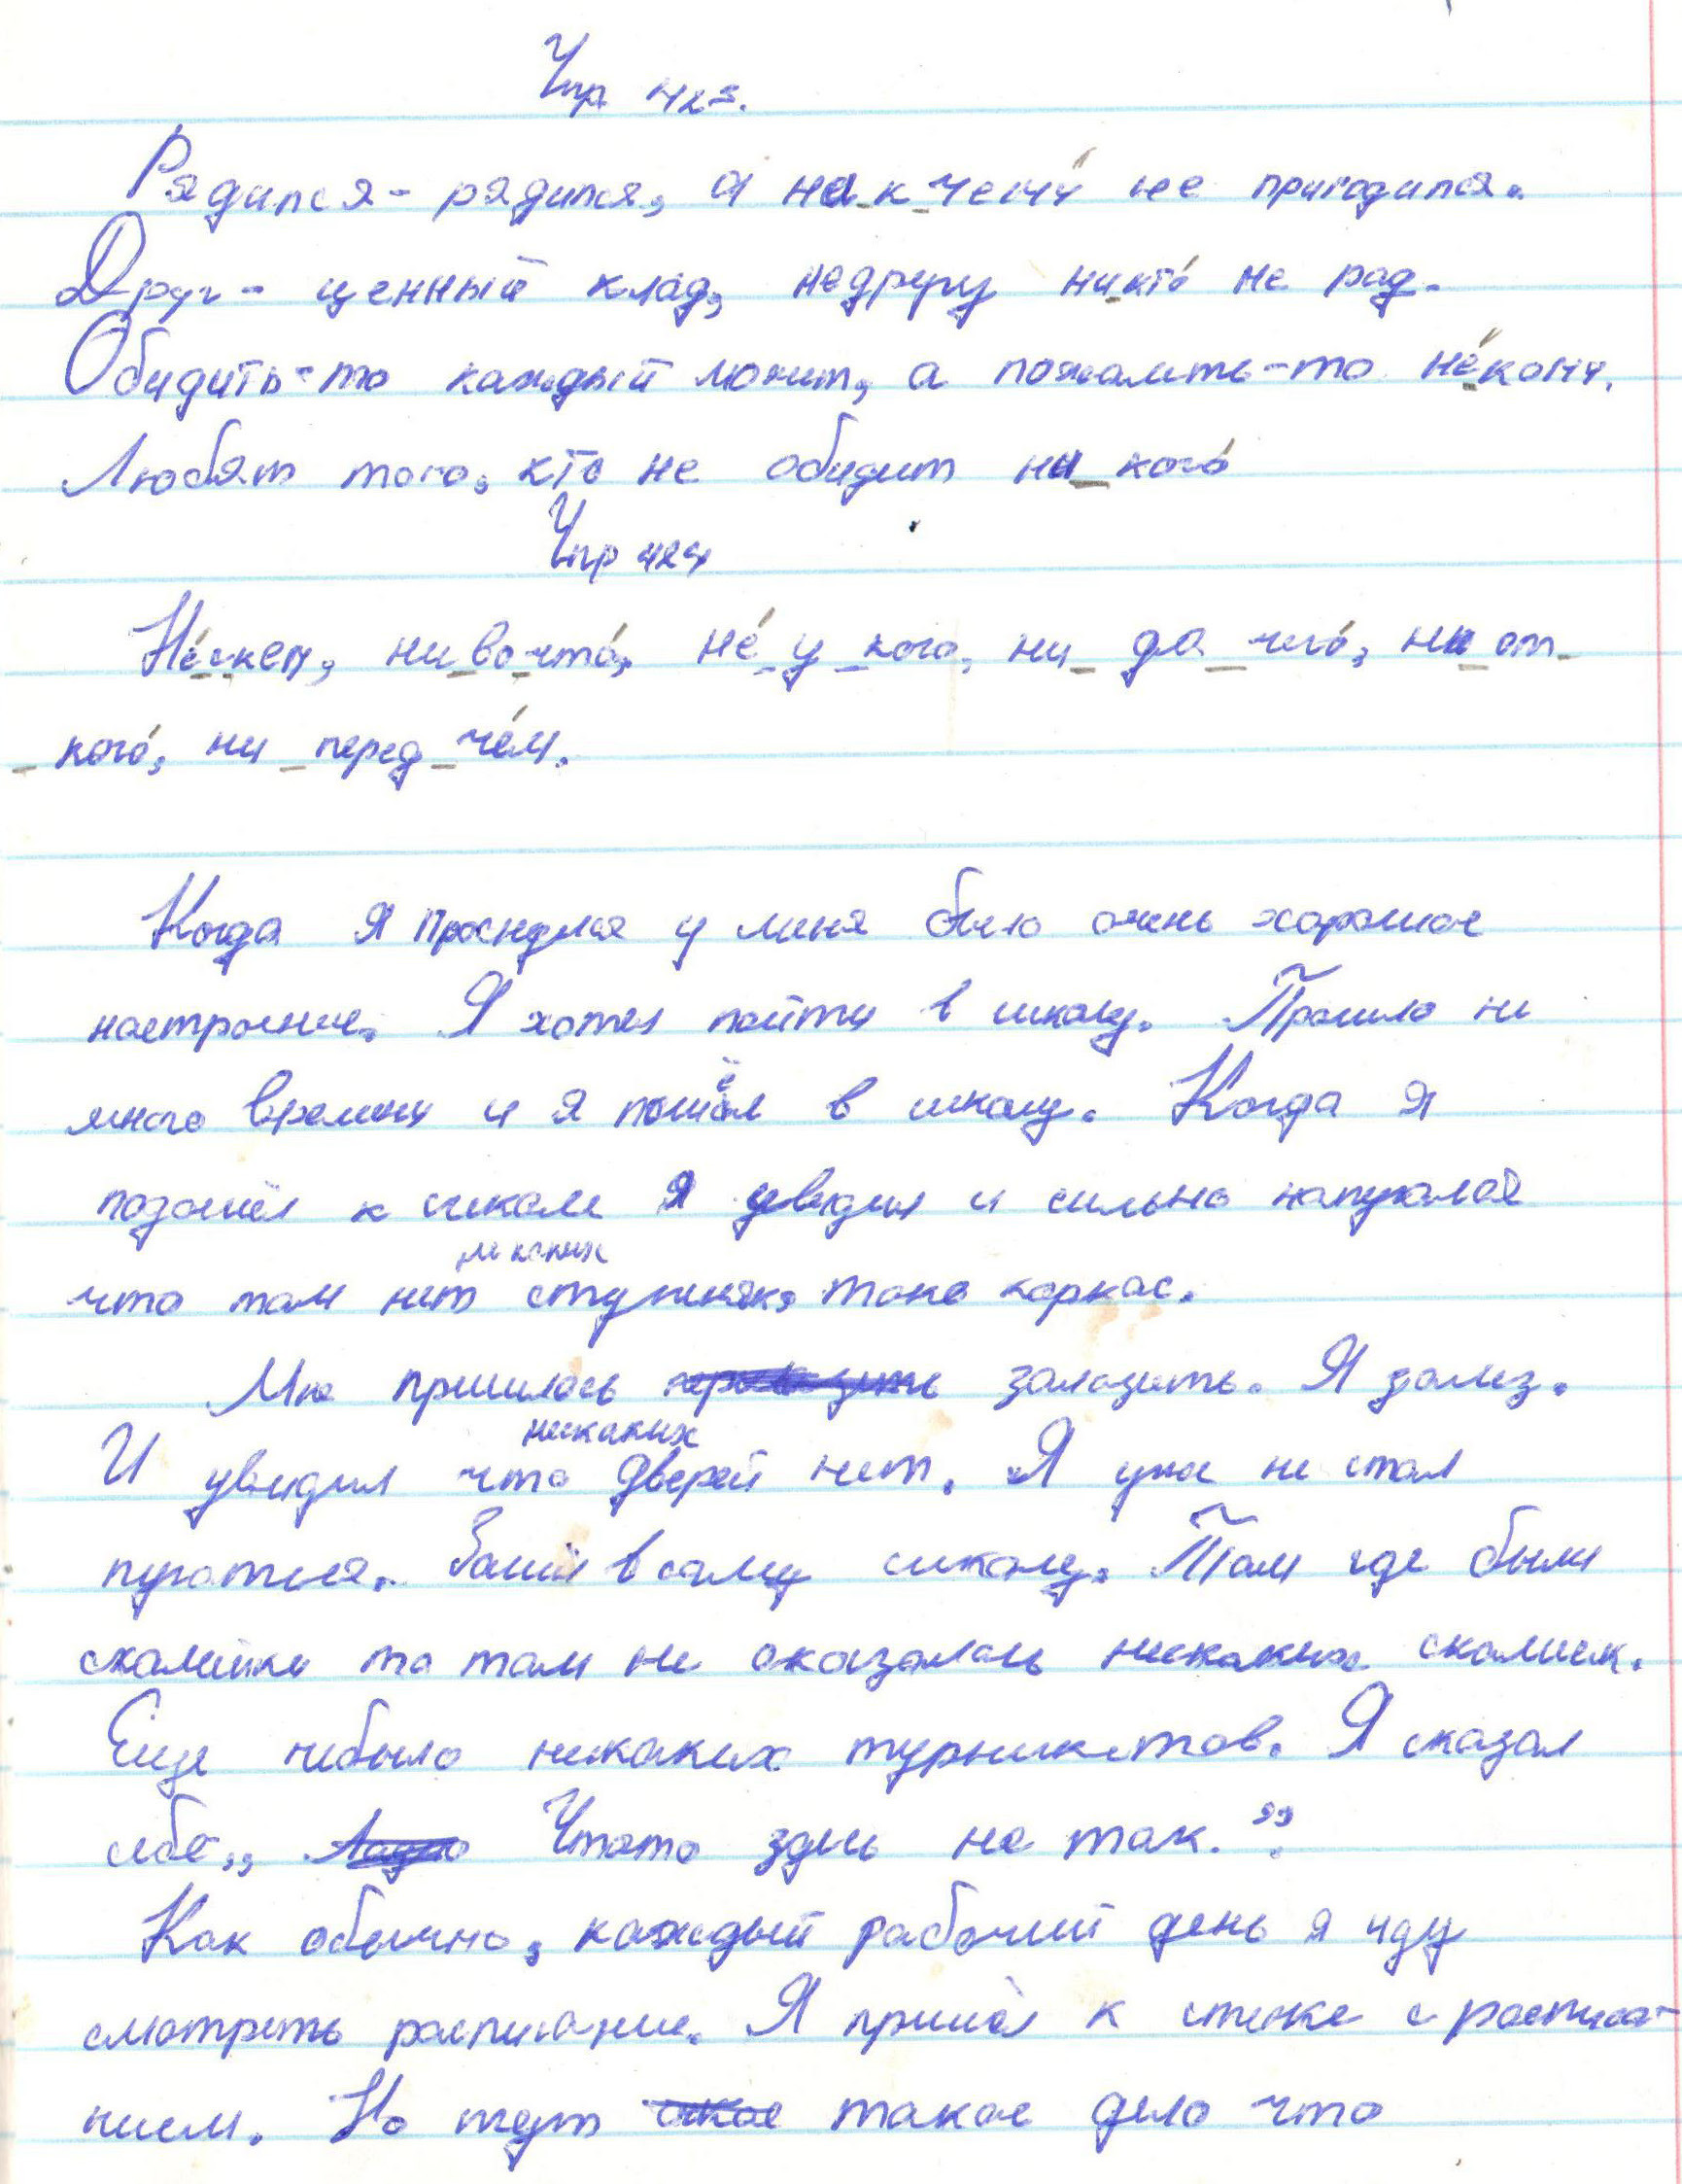 Упр 423.
Рядился - рядился, а ни к чему́ не пригодился.
Друг - ценный клад, недругу никто́ не рад.
Обидить-то каждый может, а пожалить-то не́кому.
Любят того, кто не обидит ни кого́
Упр 424
Не́ с кем, ни во что́, не́ у кого, ни до чего́, ни от
кого́, ни перед че́м.
Когда я проснулся у меня было очень хорошое
настроение. Я хотел пойти в школу. Прошло не
много времени и я пошёл в школу. Когда я
подошёл к школе я увидил и сильно напугалса
что там нет никаких ступенек, токо каркас.
Мне пришлось залазить. Я залез.
И увидил что никаких дверей нет. Я уже не стал
пугаться. Зашёл в саму школу. Там где были
скамейки то там не оказалось никаких скамеек.
Еще небыло никаких турникетов. Я сказал
себе „ Чтото здесь не так.”.
Как обычно, каждый рабочий день я иду
смотреть расписание. Я пришёл к стенке с расписа-
нием. Но тут такое дело что